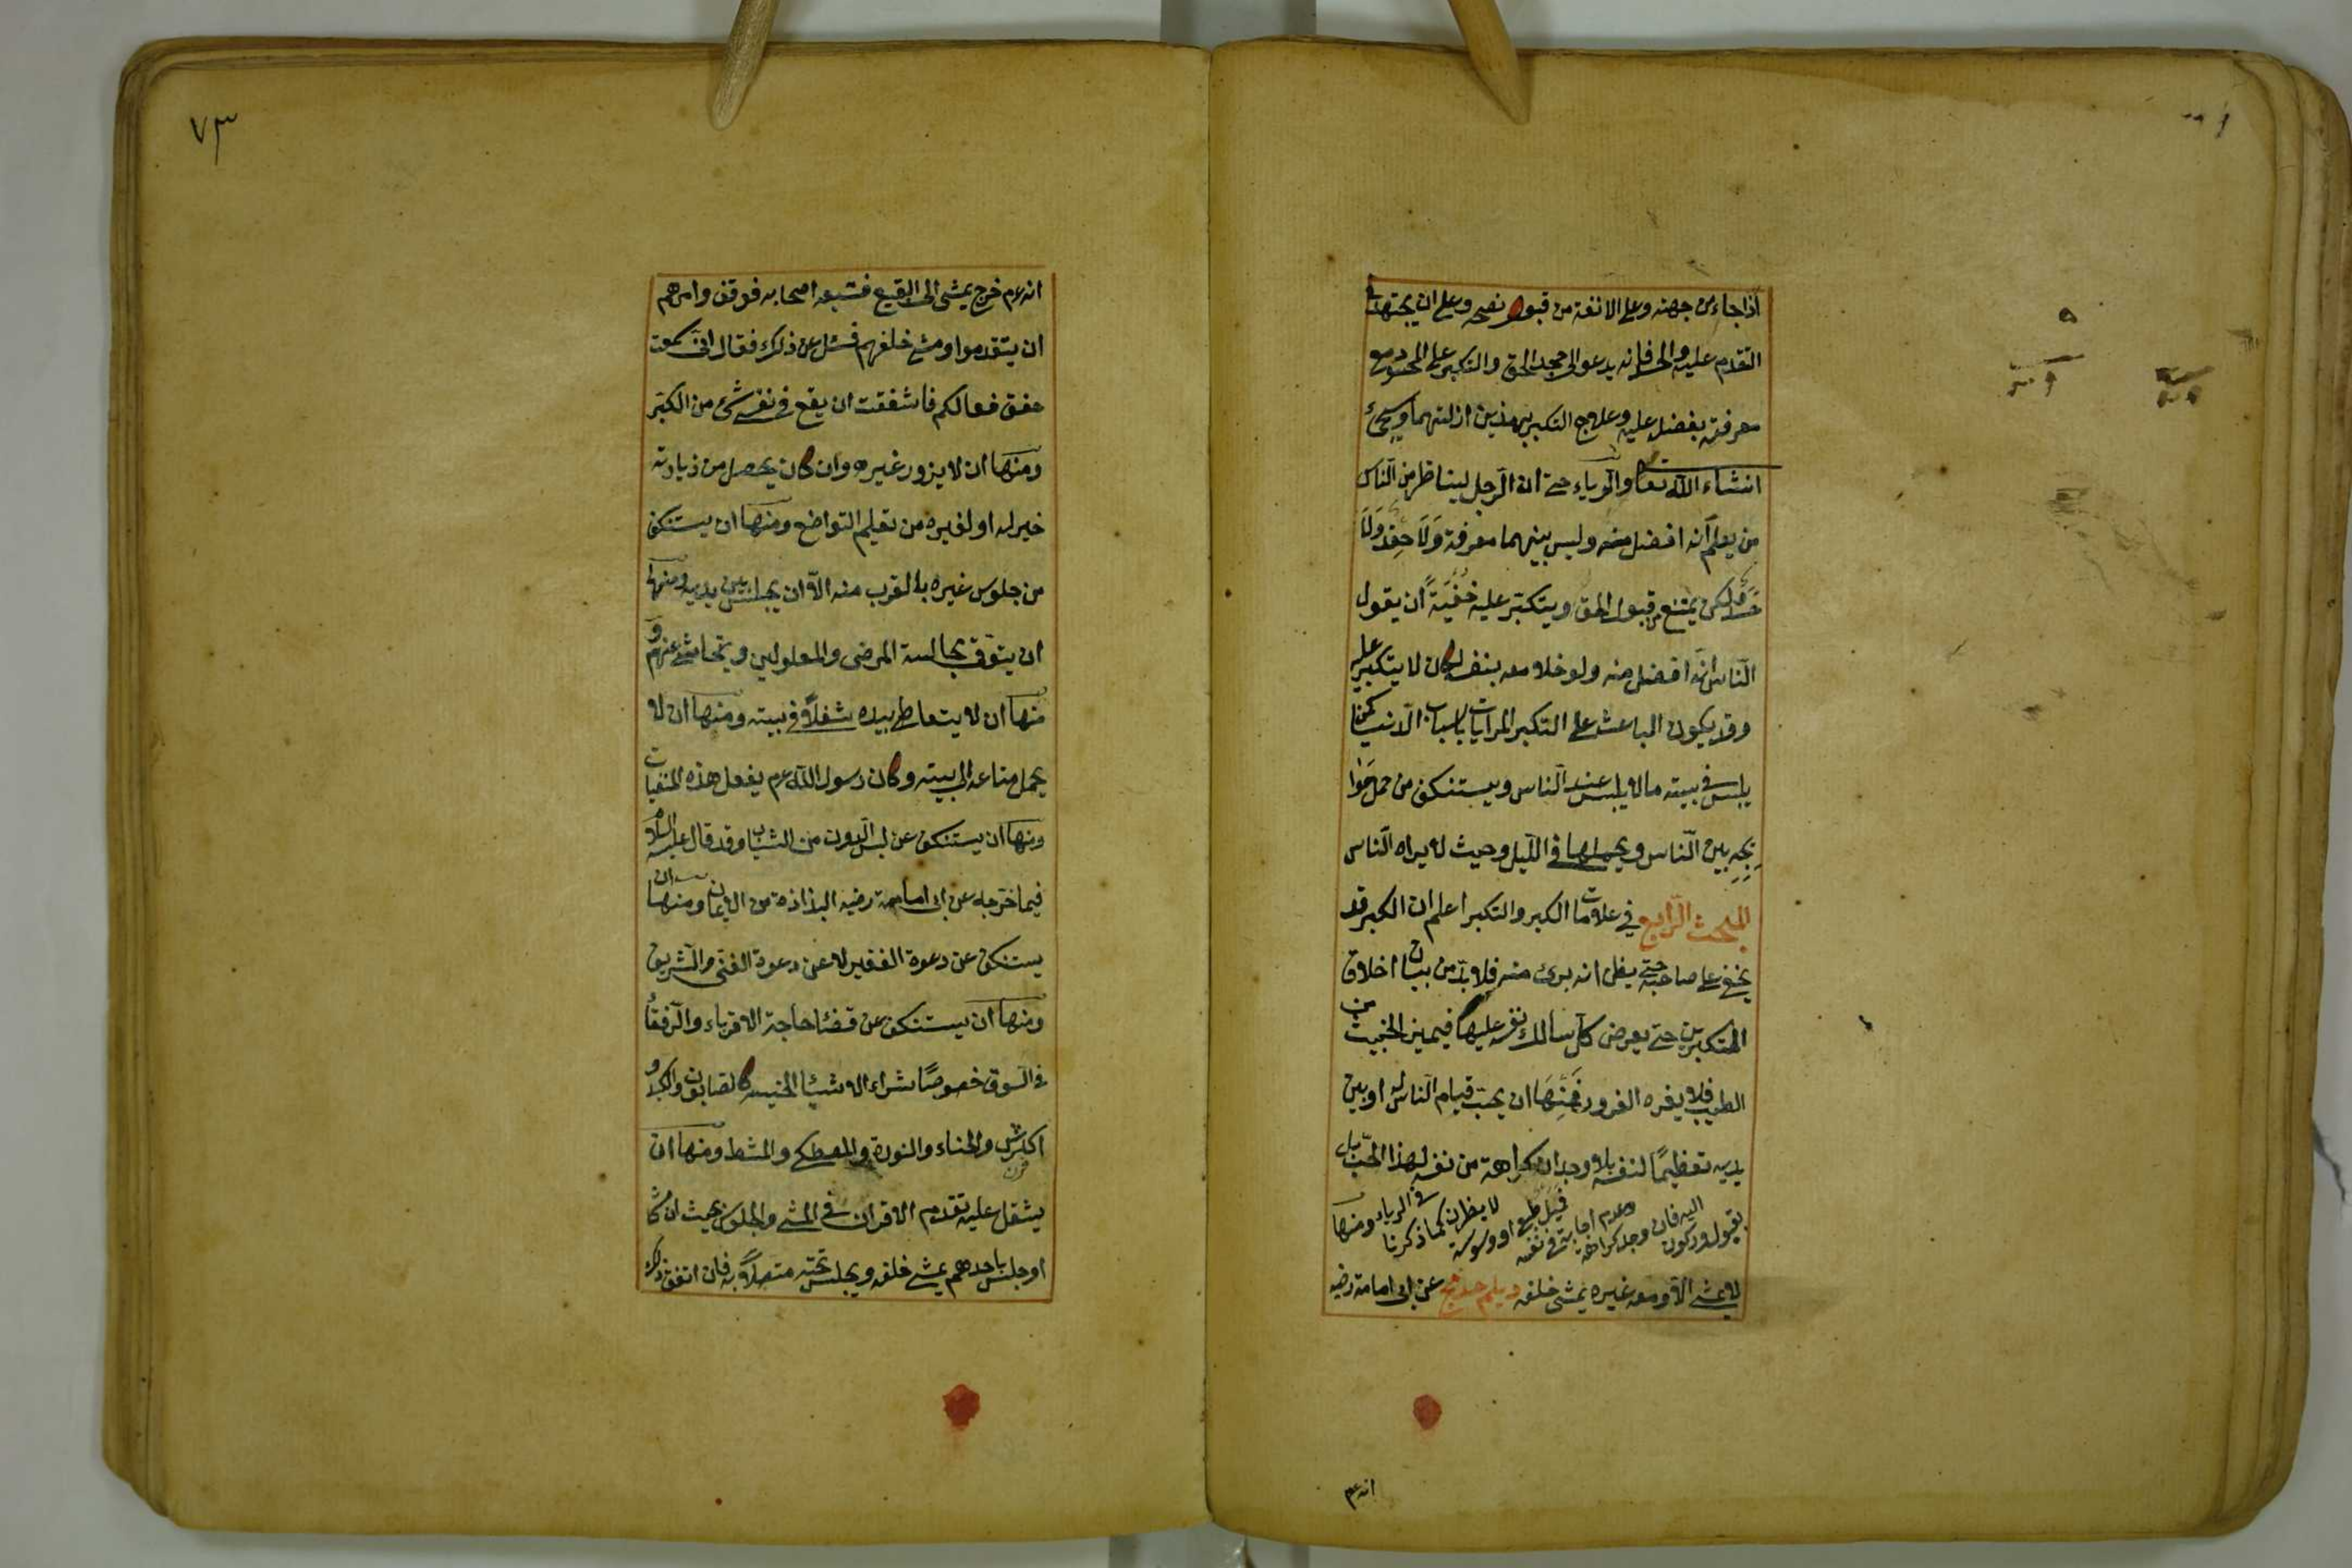 اذا جاء من جهته وعلى الانفة من قبول نصحه وعلى ان يجتهد في
التقدم عليه والحسد فانه يدعو الى جحد الحق والتكبر على المحسود مع
معرفته بفضله عليه وعلاج التكبر بهذين ازالتهما وسيجئ
انشاء الله تعا والرياء حتى ان الرجل ليناظر من الناس
من يعلم انه افضل منه وليس بينهما معرفة ولا حقد ولا
حسد ولكن يمتنع من قبول الحق ويتكبر عليه خفية ان يقول
الناس انه افضل منه ولو خلا معه بنفسه لكان لا يتكبر عليه
وقد يكون الباعث على التكبر المرايات باسباب الدنيا كمن
يلبس في بيته ما لا يلبس عند الناس ويستنكف من حمل حوا
يجه بين الناس ويحملها في الليل وحيث لا يراه الناس
المبحث الرابع في علامات الكبر والتكبر اعلم ان الكبر قد
يخفى على صاحبه حتى يظن انه برئ منه فلا بد من بيان اخلاق
المتكبرين حتى يعرض كل سالك نفسه عليها فيميز الخبيث من
الطيب فلا يغره الغرور فمنها ان يحب قيام الناس له او بين
يديه تعظيما لنفسه بلا وجدان كراهة من نفسه لهذا الحب بل
بقبول وركون اليه فان وجد كراهة وعدم اجابة في نفسه فميل طبع او وسوسة لا يضران كما ذكرنا في الرياء ومنها
لا يمشى الا ومعه غيره يمشى خلفه ديلم حد مج عن ابى امامة رضيه
انه عم
٧٣
انه عم خرج يمشى الى البقيع فتبعه اصحابه فوقف وامرهم
ان يتقدموا ومشى خلفهم فسئل عن ذلك فقال انى سمعت
خفق نعالكم فاشفقت ان يقع في نفسى شئ من الكبر
ومنها ان لا يزور غيره وان كان يحصل من زيارته
خير له او لغيره من تعليم التواضع ومنها ان يستنكف
من جلوس غيره بالقرب منه الا ان يجلس بين يديه ومنها
ان يتوقى مجالسة المرضى والمعلولين ويتحاشى عنهم و
منها ان لا يتعاطى بيده شغلا في بيته ومنها ان لا
يحمل متاعه الى بيته وكان رسول الله عم يفعل هذه المنفيات
ومنها ان يستنكف عن لبس الدون من الثياب وقد قال عليه السلام
فيما خرجه عن ابى امامة رضيه البذاذة من الايمان ومنها ان
يستنكف عن دعوة الفقير لا عن دعوة الغنى والشريف
ومنها ان يستنكف عن قضاء حاجة الاقرباء والرفقاء
في السوق خصوصا شراء الاشياء الخسيسة كالصابون والكبد و
اكرش والحناء والنورة والمصطكى والمشط ومنها ان
يثقل عليه تقدم الاقران في المشى والجلوس بحيث ان مشا
او جلس باحدهم يمشى خلفه ويجلس تحته متصلا به فان اتفق ذلك